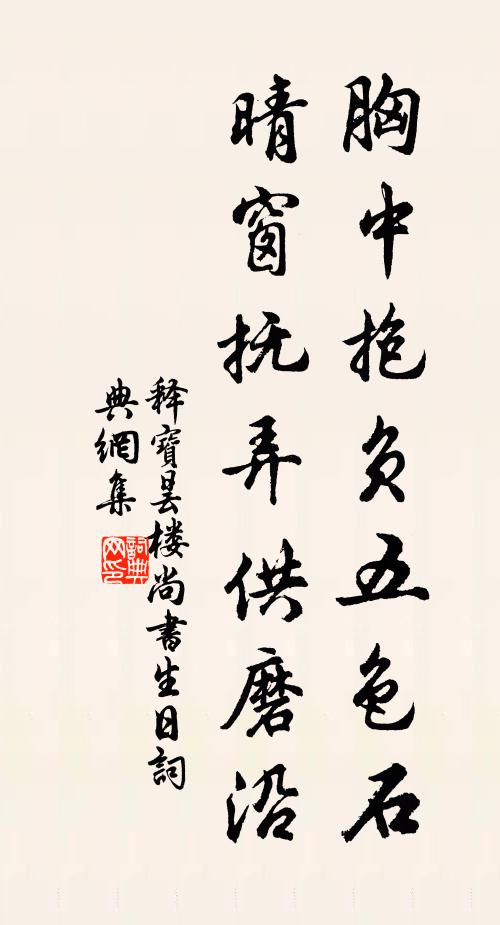 胸中抱负五色石
晴窗抚弄供磨沿
释寶昙楼尚書生日詞
典網集
詞典网印